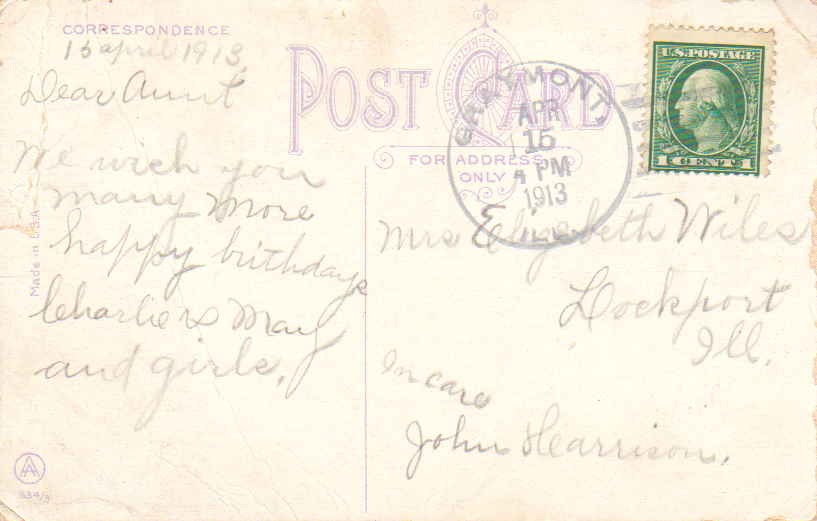 CORRESPONDENCE
15 april 1913
Dear Aunt
We wish you
many more
happy birthdays
Charlie & May
and girls.
Made in U.S.A.
POST CARD
FOR ADDRESS
ONLY
GRAYMONT,
APR
15
4 PM
1913
ILL.
U.S. POSTAGE
1 CENT 1
Mrs Elizabeth Wiles
Lockport
Ill.
In care
John Hearrison.
AA